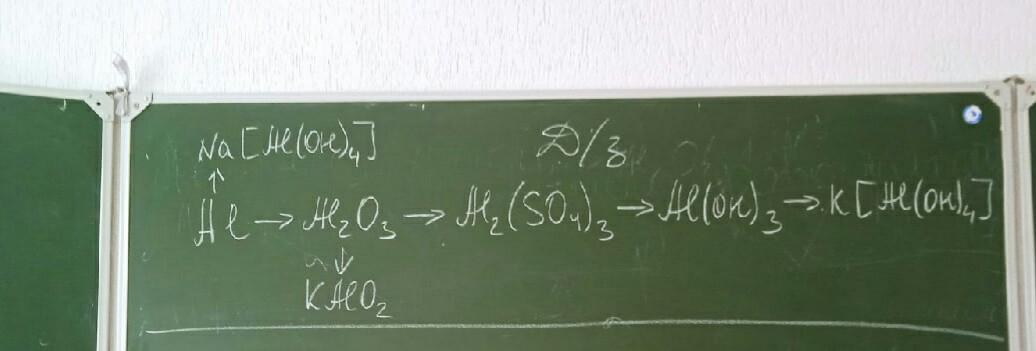 Д/з
Na[Al(OH)₄]
↑
Al → Al₂O₃ → Al₂(SO₄)₃ → Al(OH)₃ → K[Al(OH)₄]
↓
KAlO₂